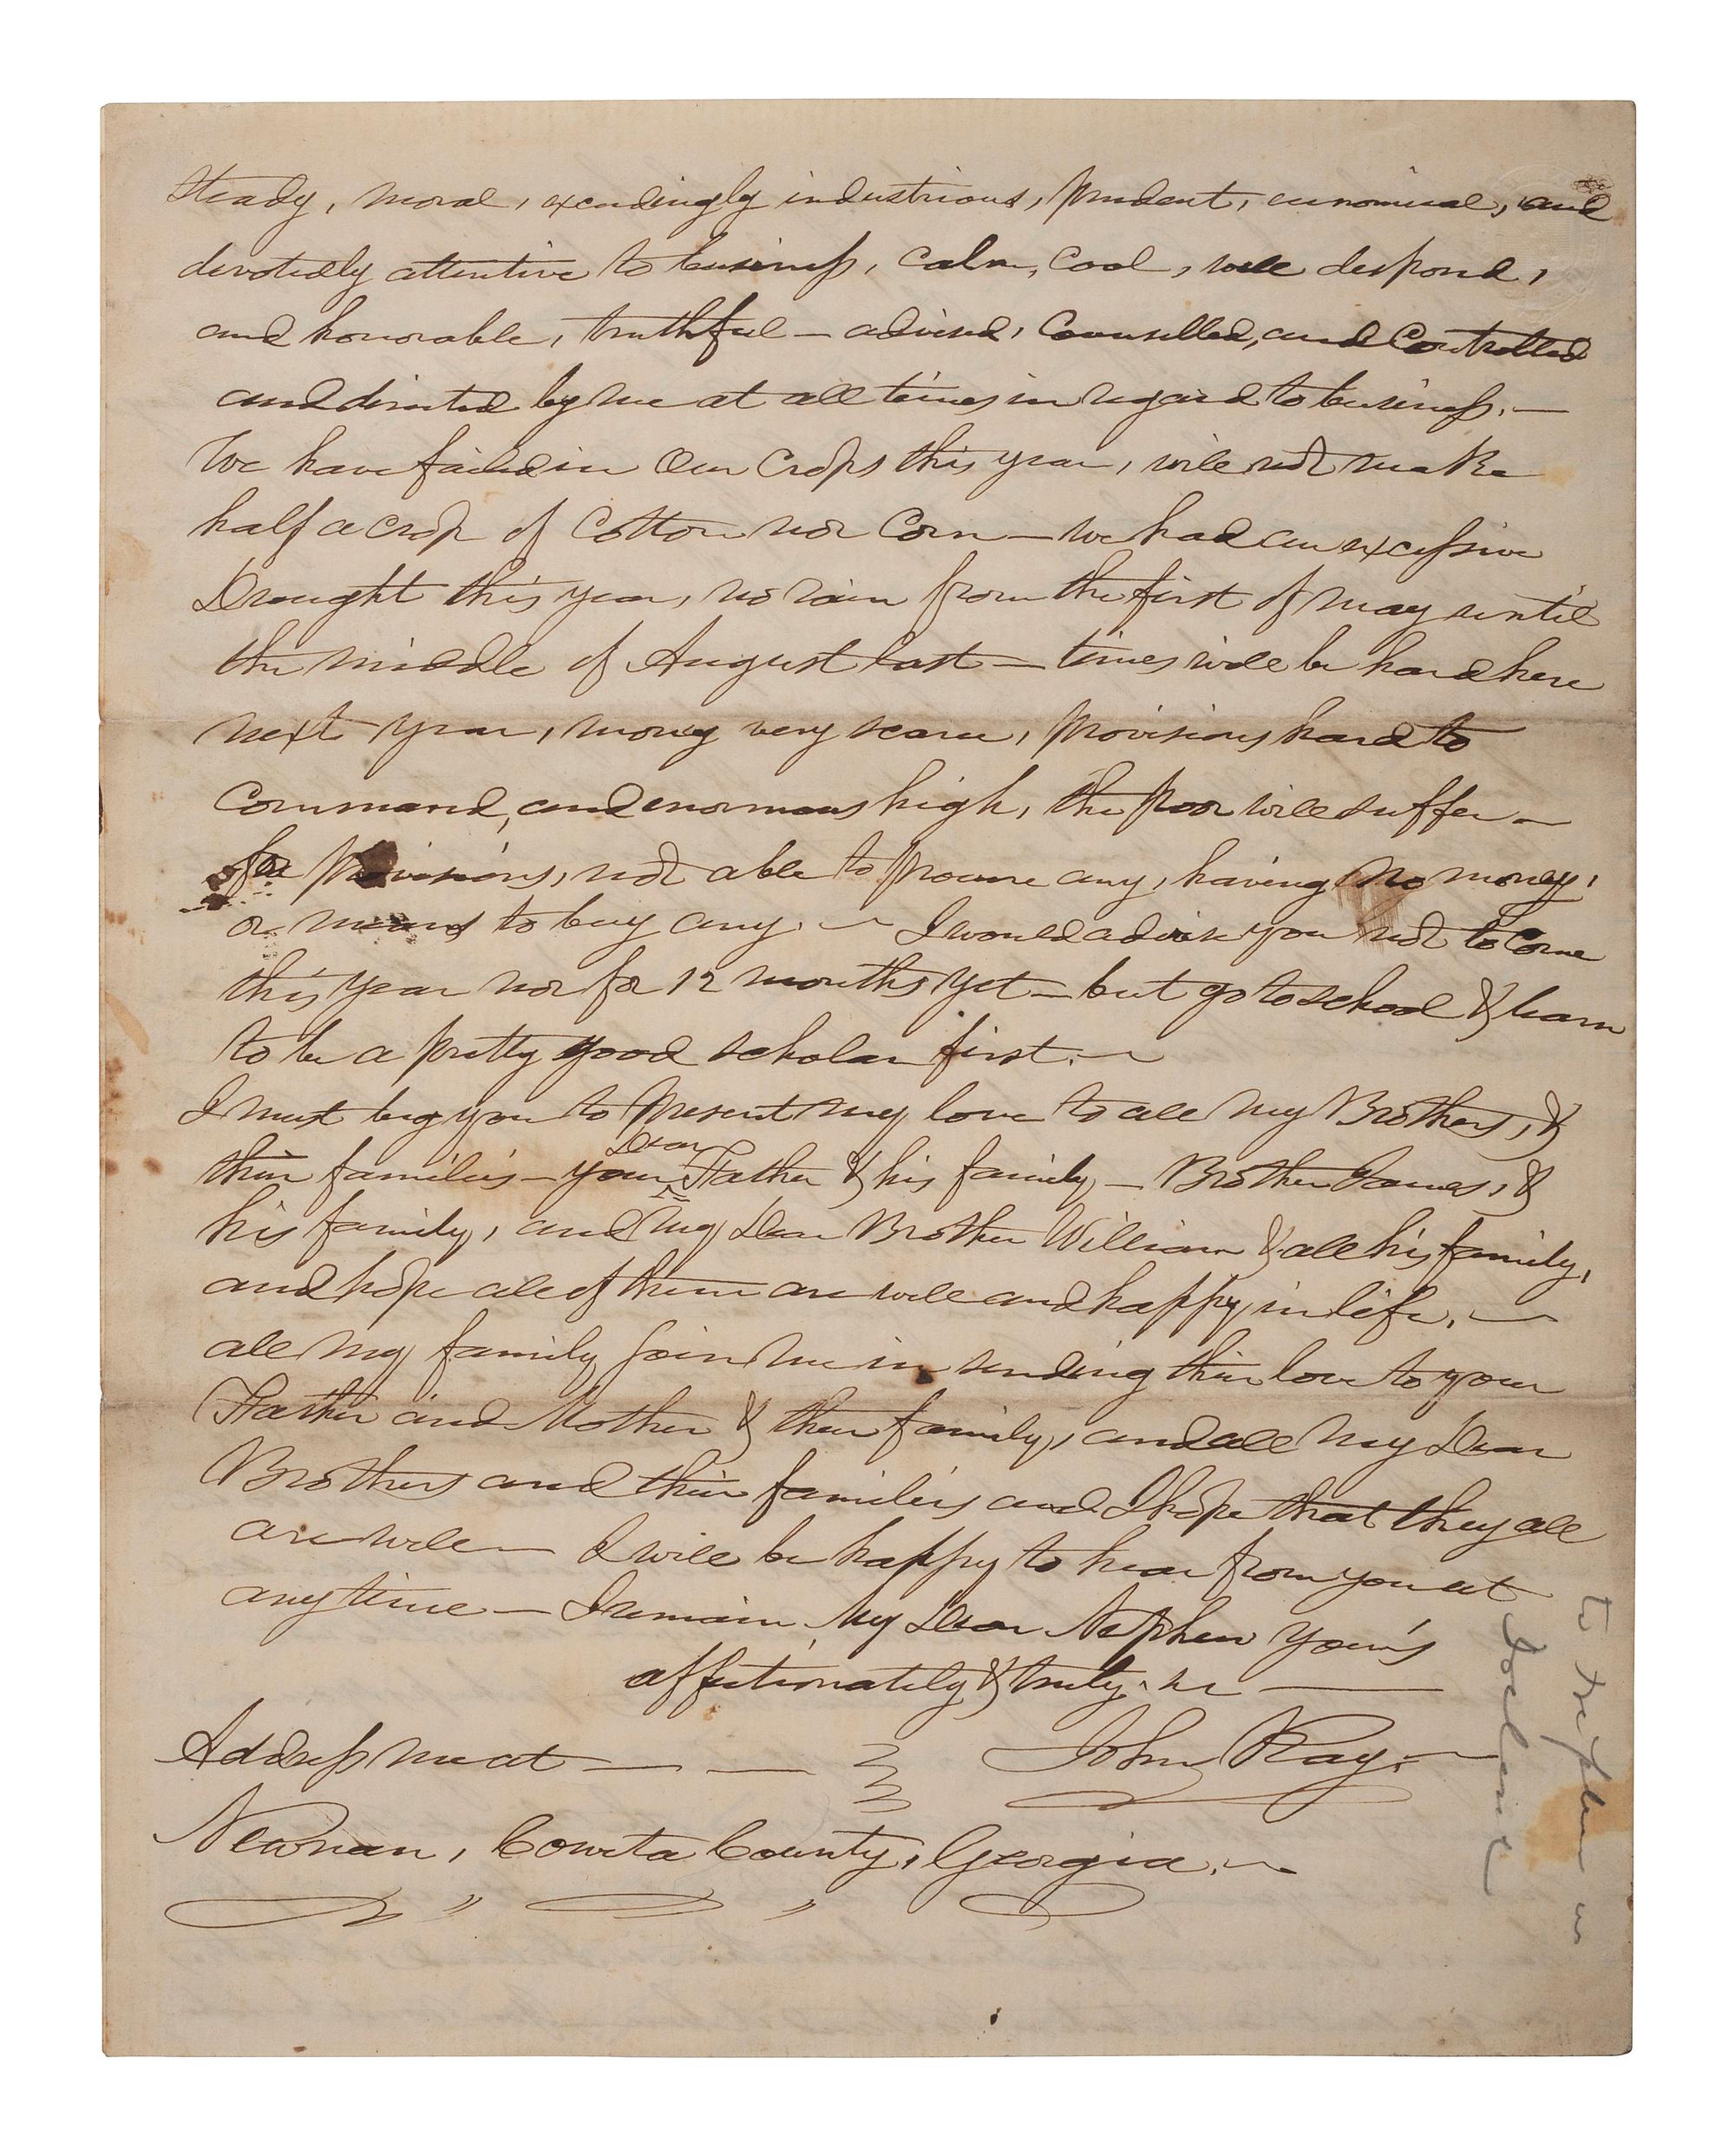 steady, moral, exceedingly industrious, prudent, economical, and
devotedly attentive to business, calm, cool, well disposed,
and honorable, truthful — advised, Counselled, and Controlled
and directed by me at all times in regard to business. —
We have failed in Our Crops this year, will not make
half a crop of Cotton nor Corn — we had an excessive
Drought this year, no rain from the first of may until
the middle of August last — times will be hard here
next year, money very scarce, provisions hard to
Command, and enormous high, the poor will suffer —
for provisions, not able to procure any, having no money,
or means to buy any. — I would advise you not to Come
this year nor for 12 months yet — but go to school & learn
to be a pretty good scholar first. —
I must beg you to present my love to all my Brothers, &
their families — your Dear Father & his family — Brother James, &
his family, and My Dear Brother William & all his family,
and hope all of them are well and happy in life. —
all my family join me in sending their love to your
Father and Mother & their family, and all my Dear
Brothers and their families and I hope that they all
are well — I will be happy to hear from you at
any time — I remain My Dear Nephew your's
affectionately & truly. —
Address me at — — John Ray. —
Newnan, Coweta County, Georgia. —
to nephew in
Ireland